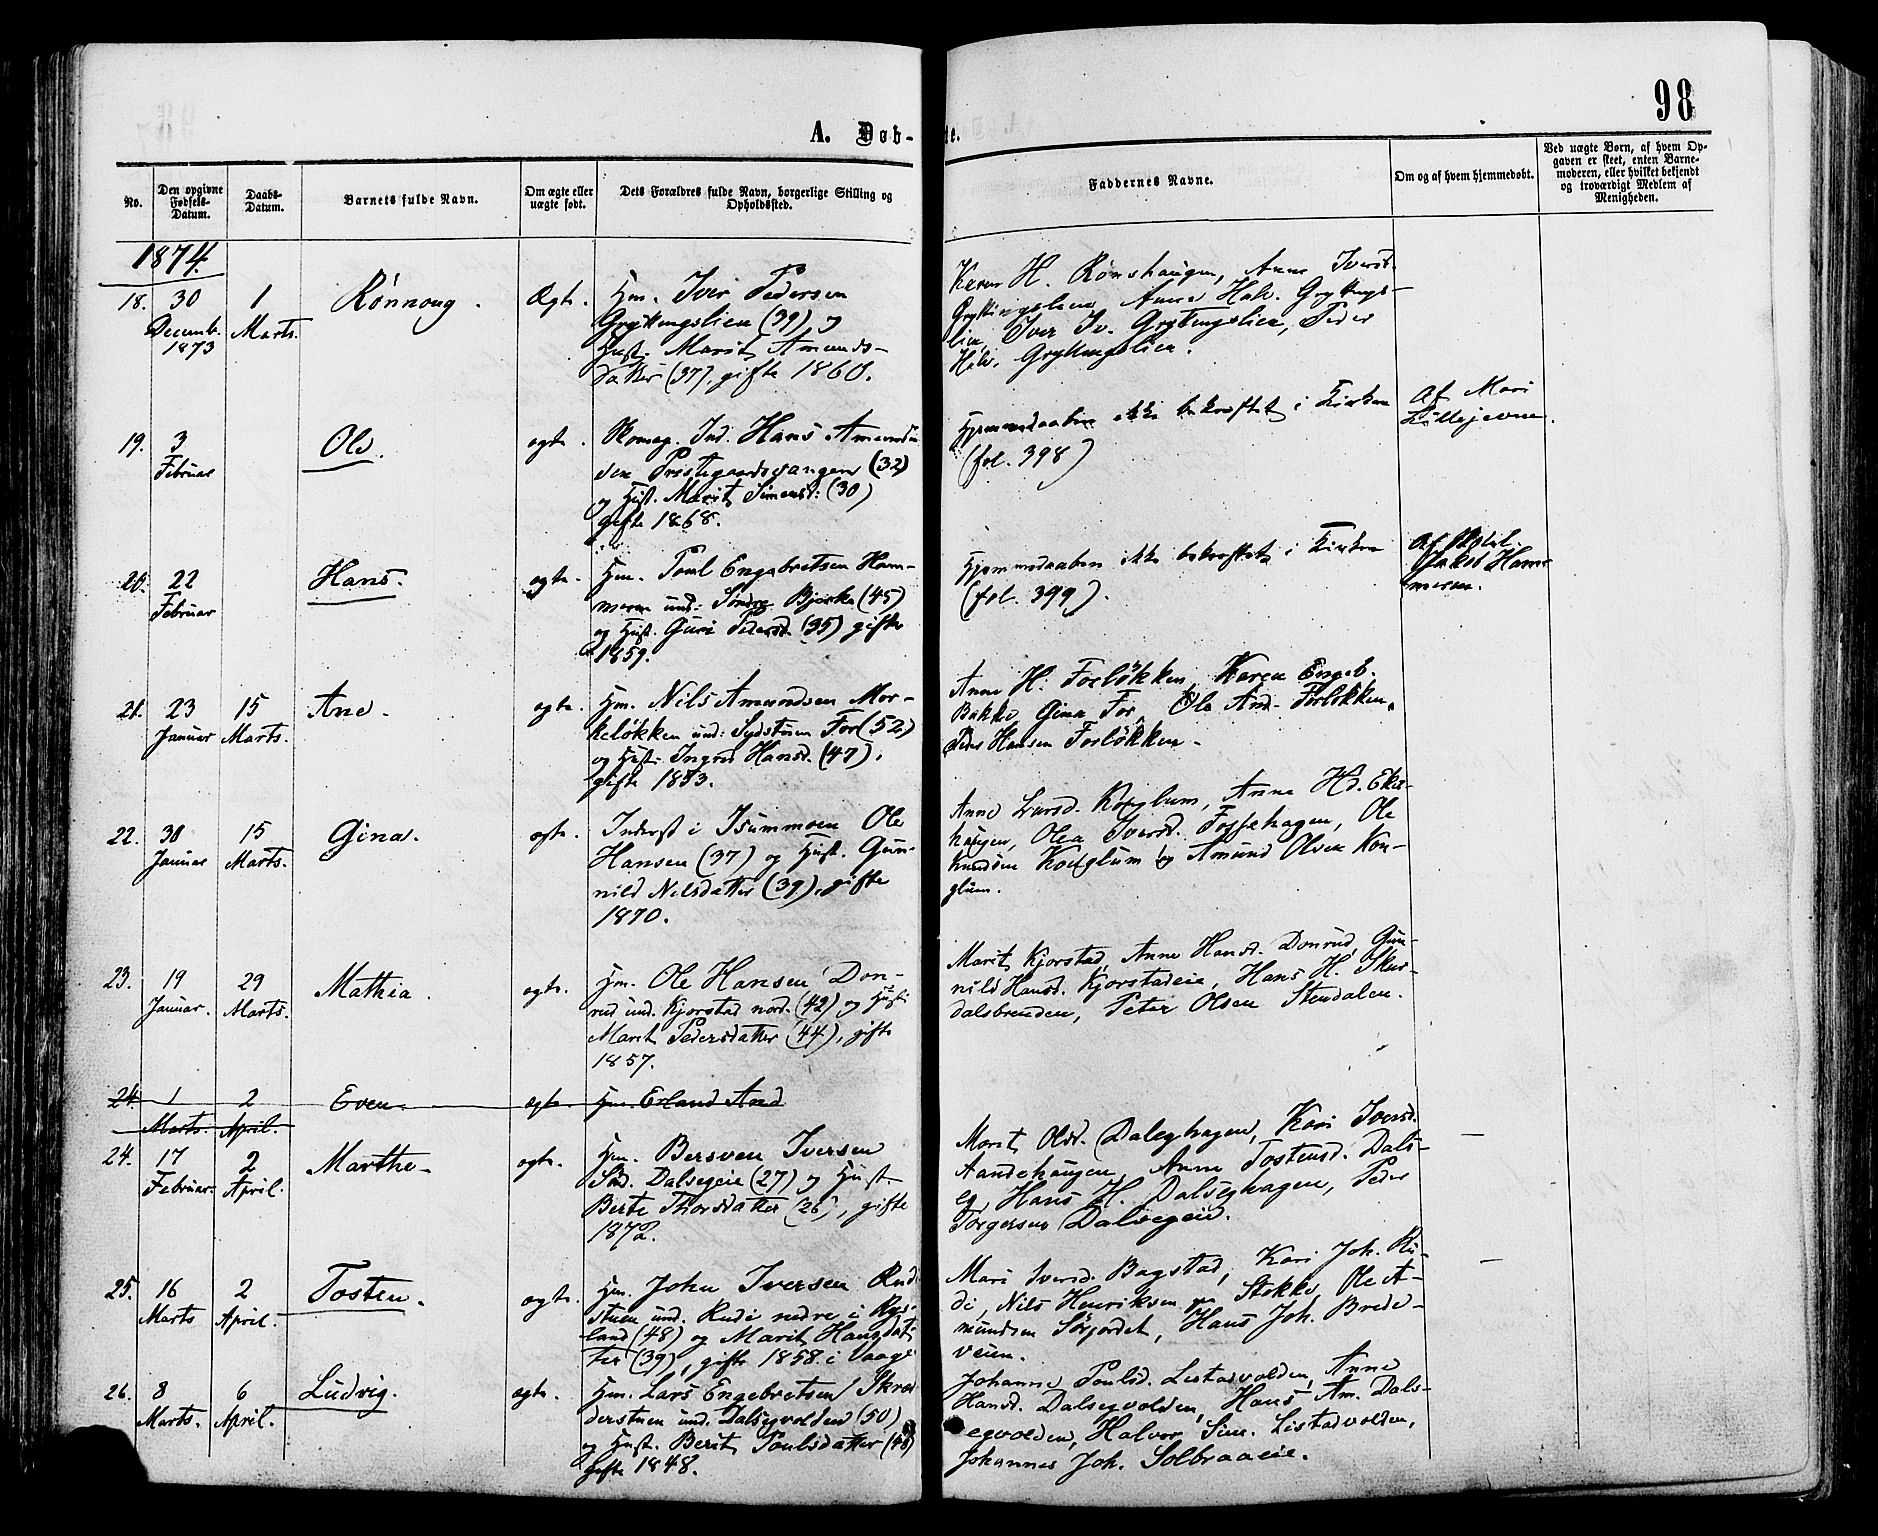 98
A. Døb-
te.
No.
Den opgivne
Fødsels-
Datum.
Daabs-
Datum.
Barnets fulde Navn.
Om ægte eller
uægte født.
Dets Forældres fulde Navn, borgerlige Stilling og
Opholdssted.
Faddernes Navne.
Om og af hvem hjemmedøbt.
Ved uægte Børn, af hvem Op-
gaven er skeet, enten Barne-
moderen, eller hvilket bekjendt
og troværdigt Medlem af
Menigheden.
1874.
18. 30
Decemb.
1873
1
Marts.
Rønnoug.
Ægte.
Hm. Iver Pedersen
Gryttingslien (39) og
Hust. Marit Amunds-
datter (37), gifte 1860.
Karen H. Rønshaugen, Anne Iversd.
Gryttingslien, Anne Halv. Gryttings-
lien, Iver Iv. Gryttingslien, Peder
Halv. Gryttingslien.
19. 3
Februar
Ole.
ægte.
Skomag. Ind. Hans Amund-
sen Præstegaardsvangen (32)
og Hust. Marit Simensd: (30)
gifte 1868.
Hjemmedaaben ikke bekræftet i Kirken
(fol. 398)
Af Mari
Lillejevne.
20. 22
Februar
Hans.
ægte.
Hm. Poul Engebretsen Ham-
meren und: Søndre Bjørke (45)
og Hust. Guri Pedersd. (35) gifte
1859.
Hjemmedaaben ikke bekræftet i Kirken
(fol. 399).
Af
Jakob Ham-
meren.
21. 23
Januar
15
Marts.
Ane.
ægte.
Hm. Nils Amundsen Mor-
keløkken und: Sydstuen For (52)
og Hust. Ingrid Hansd. (47),
gifte 1853.
Anne H. Forløkken, Karen Engeb.
Bakke, Gina For, Ole And. Forløkken,
Peder Hansen Forløkken.
22. 30
Januar
15
Marts.
Gina.
ægte.
Inderst i Isummoen Ole
Hansen (37) og Hust. Gun-
nild Nilsdatter (39), gifte
1870.
Anne Larsd. Konglum, Anne Hd. Eke-
haugen, Olea Iversd. Fossehagen, Ole
Knudsen Konglum og Amund Olsen Kon-
glum.
23. 19
Januar.
29
Marts.
Mathia.
ægte.
Hm. Ole Hansen Don-
rud und. Kjorstad nord. (42) og Hust.
Marit Pedersdatter (44), gifte
1857.
Marit Kjorstad, Anne Hansd. Donrud, Gun-
nild Hansd. Kjorstadeie, Hans H. Skur-
dalsbrenden, Peter Olsen Stendalen.
24. 1
Marts.
2
April.
Even.
ægte.
Hm. Erland And
24. 17
Februar.
2
April.
Marthe.
ægte.
Hm. Bersven Iversen
Sønd. Dalsegeie (27) og Hust.
Berte Thorsdatter (26), gifte
1872.
Marit Olsd. Daleghagen, Kari Iversd.
Aandehaugen, Anne Tostensd. Dals-
eg, Hans H. Dalseghagen, Peder
Torgersen Dalsegeie.
25. 16
Marts
2
April.
Tosten.
ægte.
Hm. John Iversen Rud-
stuen und. Rudi nedre i Rys-
land (48) og Marit Hansdat-
ter (39), gifte 1858. i Vaage
Mari Iversd. Bagstad, Kari Joh. Ru-
di, Nils Henriksen pa Stokke, Ole A-
mundsen Sørjordet, Hans Joh. Brede-
veien.
26. 8
Marts.
6
April.
Ludvig.
ægte.
Hm. Lars Engebretsen Skræd-
derstuen und. Dalsegvolden (50)
og Hust. Berit Poulsdatter (48)
gifte 1848.
Johanne Poulsd. Listadvolden, Anne
Hansd. Dalsegvolden, Hans Am. Dals-
egvolden, Halvor Sim. Listadvolden,
Johannes Joh. Solbraaeie.